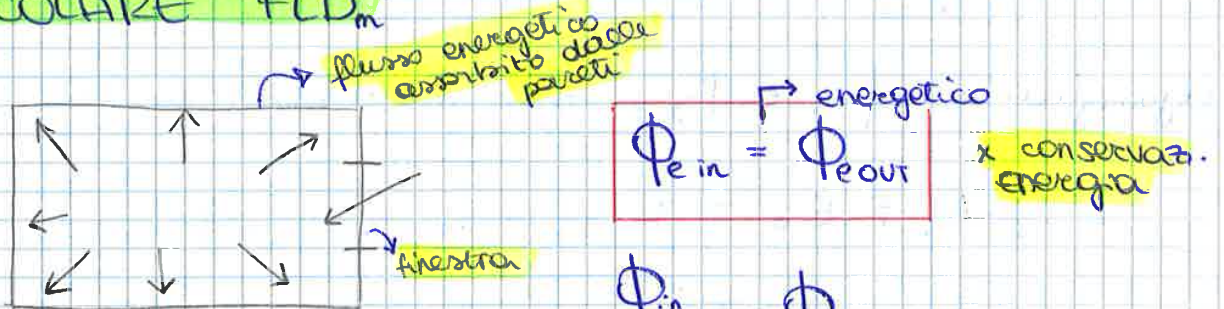 COLARE FLD_m
flusso energetico
assorbito dalle
pareti
energetico
Φ_e in = Φ_e OUT
x conservaz.
energia
finestra
Φ_in Φ